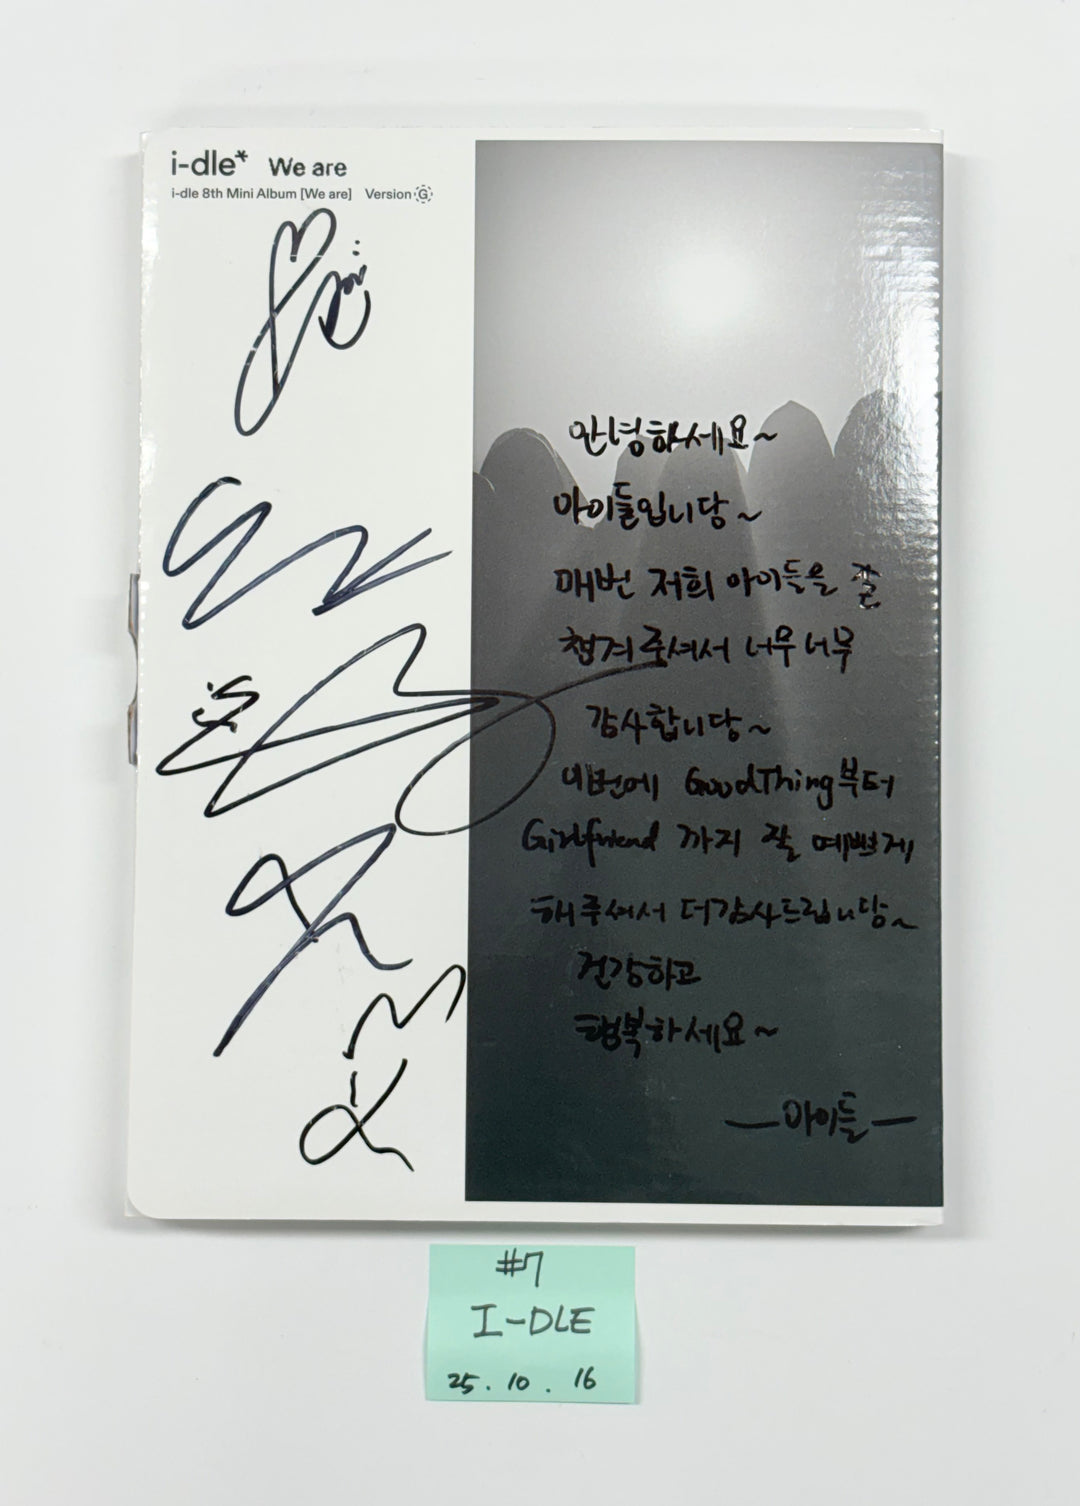 i-dle* We are
i-dle 8th Mini Album [We are] Version G
안녕하세요~
아이들입니당~
매번 저희 아이들을 잘
챙겨주셔서 너무너무
감사합니당~
이번에 GoodThing부터
Girlfriend 까지 잘 예쁘게
해주셔서 더감사드립니당~
건강하고
행복하세요~
—아이들—
#7
I-DLE
25. 10. 16